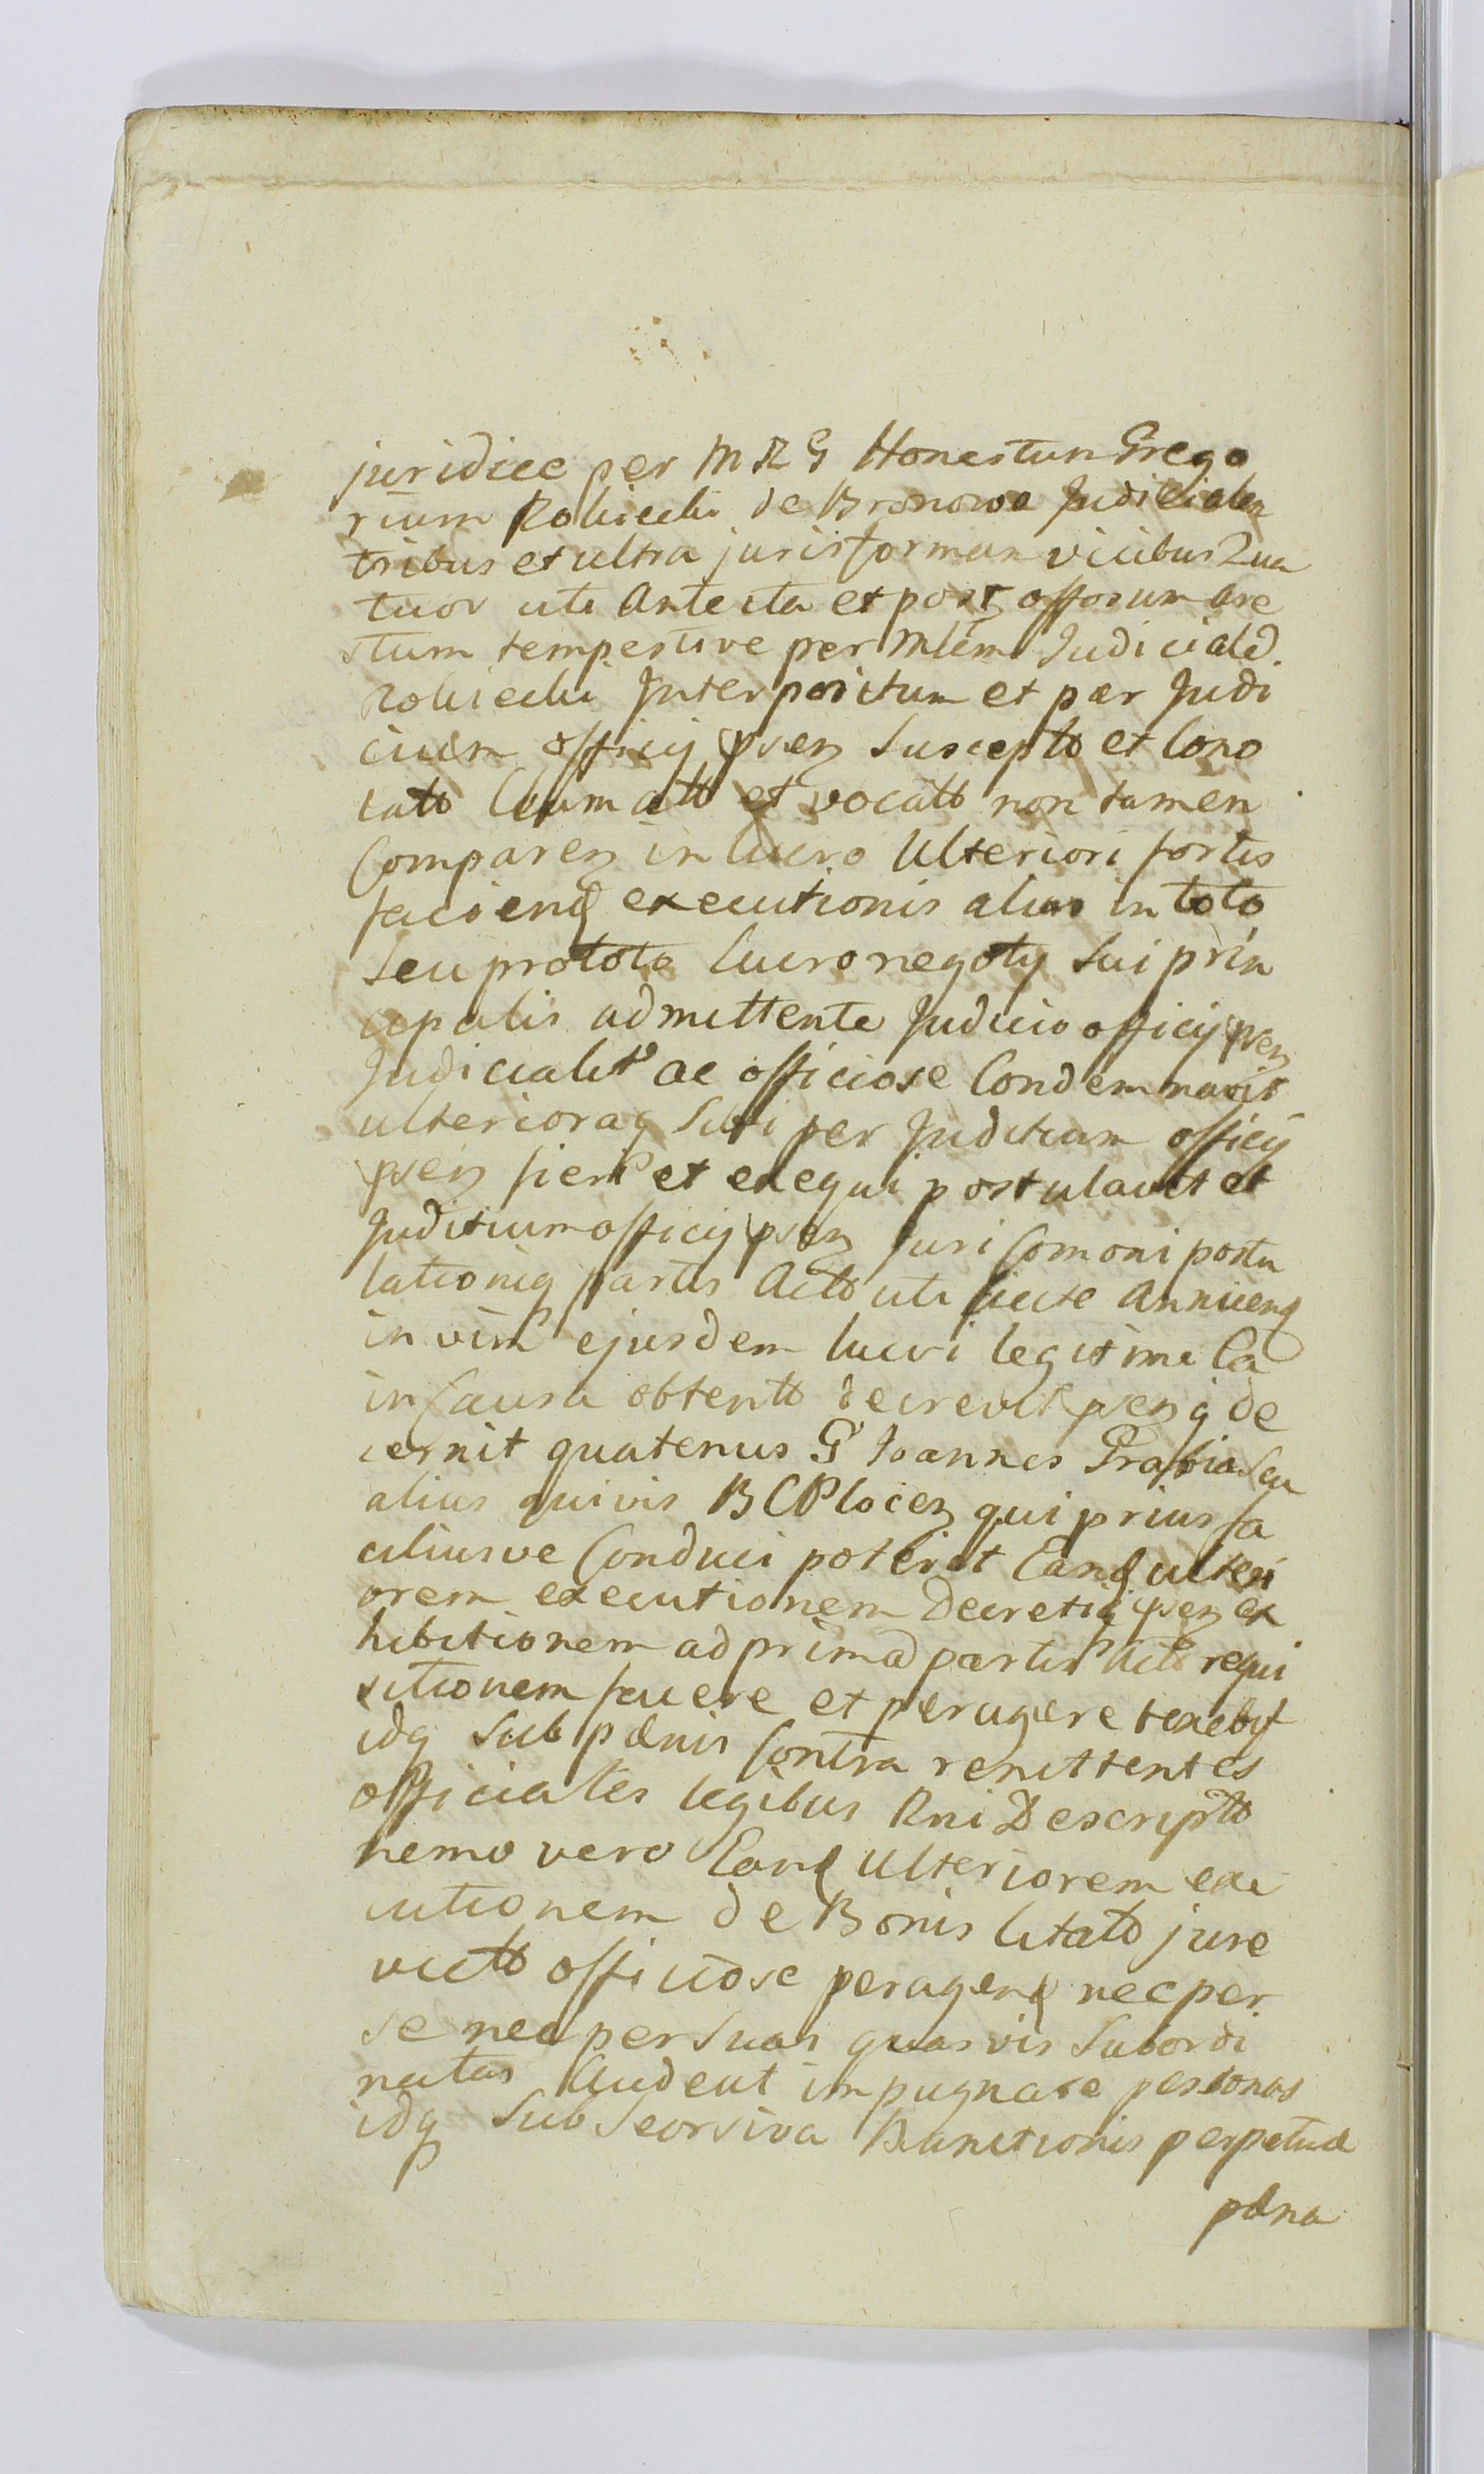 juridice per M R G Honestum Grego
rium Robiecki de Bronowo Judicialem
tribus et ultra juris formam vicibus Qua
tuor uti ante ita et post offosum are
stum tempestive per Mlem Judiciald.
Robiecki Interpositum et par Judi
cium officij psen Suscepto et Cono
tatto Clamatto et vocatto non tamen
Comparen in lucro Ulteriori fortis
faciend executionis alias in toto
Seu pro toto lucro negotij Sui prin
cipalis admittente Judicio officij psen
Judicialitr ac officiose Condemnavit
ulterioraq Sibi per Juditium officij
psen fieri et exequi postulavit et
Juditium officij psen Juri Comoni postu
lationiq partis Actto uti juste Annuend
in vim ejusdem lucri legitime Ca
in Causa obtentto decrevit psenq de
cernit quatenus G Joannes Grabia Seu
alius quivis B C Plocen qui prius fa
ciliusve Conduci poterit Eand ulteri
orem executionem Decretiq psen ex
hibitionem ad primam partis Actto requi
sitionem facere et peragere tenebit
idq Sub pænis Contra renittentes
officiales legibus Rni Descriptto
nemo vero Eand Ulteriorem exe
cutionem de Bonis Citatto jure
victto officiose peragend nec per
se nec per Suas quasvis Subordi
natas Audeat impugnare personas
idq Sub Seorsiva Banitionis perpetuæ
pæna